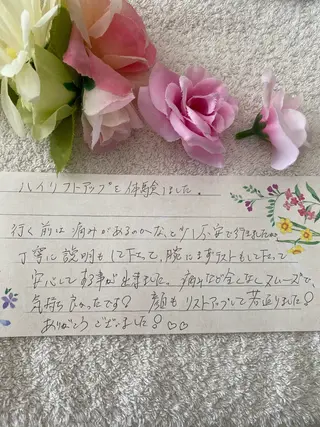 ハイリフトアップを体験しました。
行く前は痛みがあるのかな、と少し不安で行きましたが
丁寧に説明もして下さって、腕にまずテストもして下さって
安心してする事が出来ました。痛みなど全くなくスムーズで、
気持ち良かったです♪ 顔もリフトアップして若返りました♪
ありがとうございました♪ ♡♡